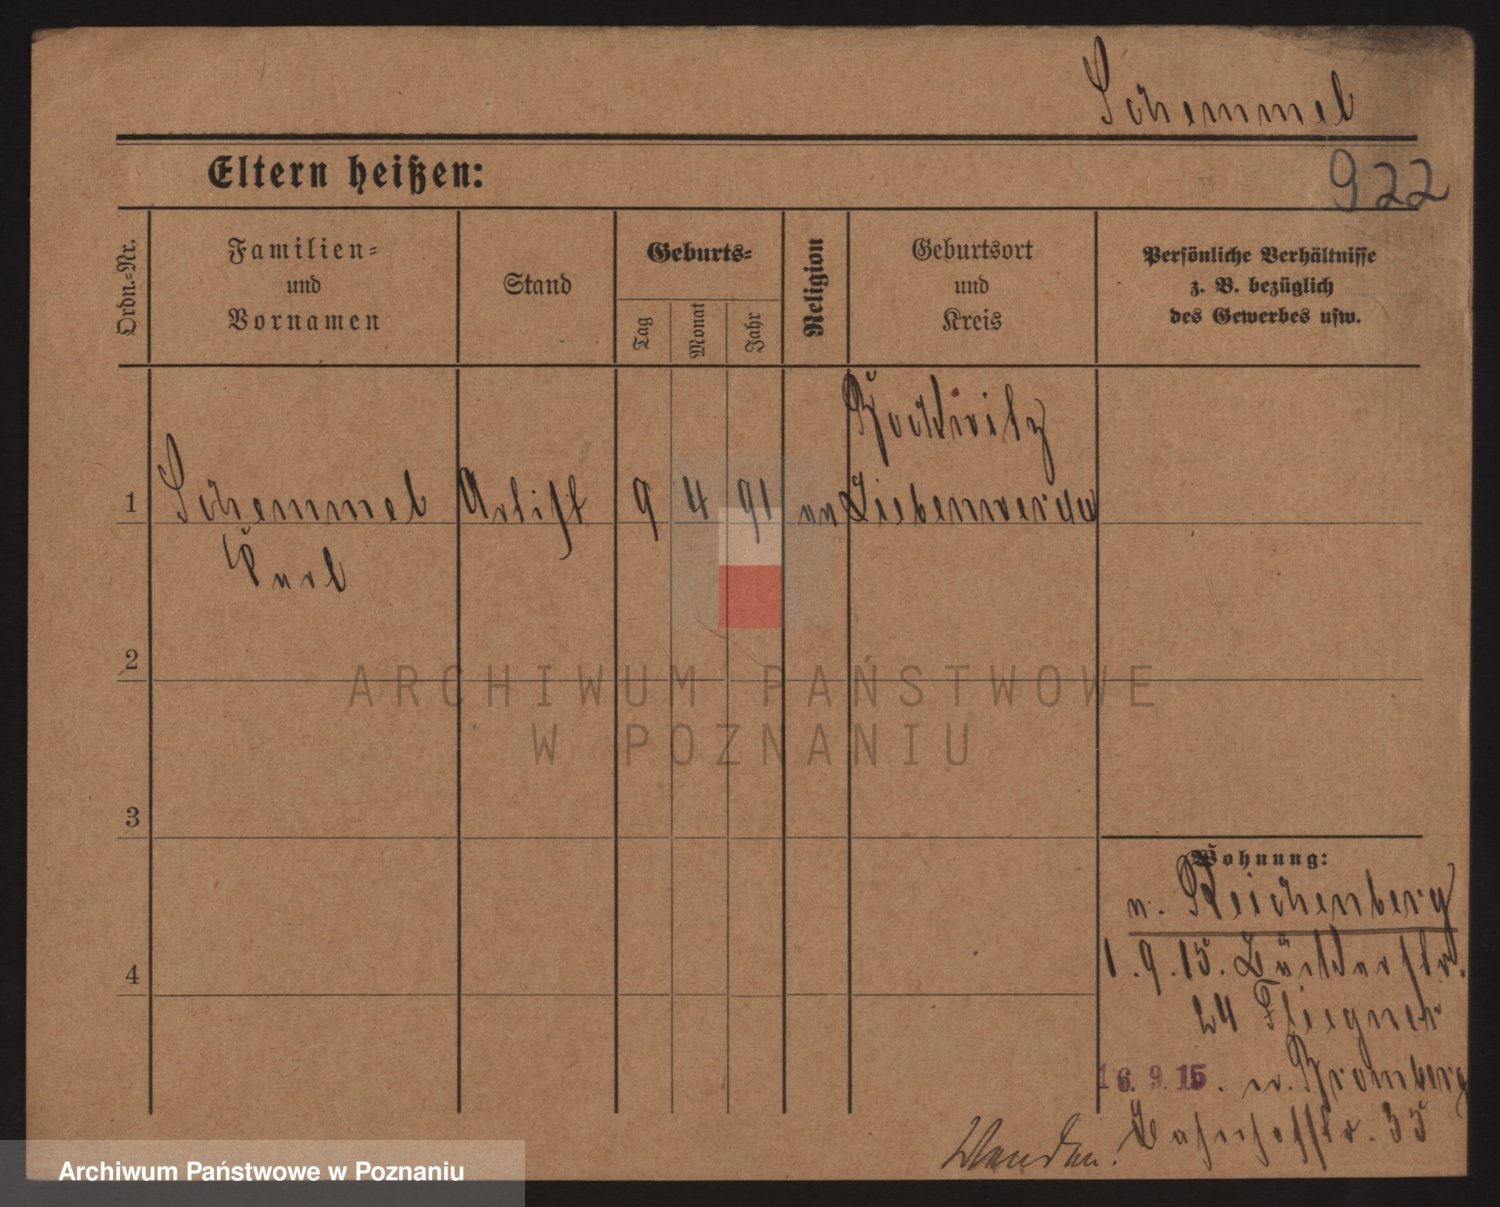 Schemmel
Eltern heißen:
922
Ordn.-Nr.
Familien-
und
Vornamen
Stand
Geburts-
Tag
Monat
Jahr
Religion
Geburtsort
und
Kreis
Persönliche Verhältnisse
z. B. bezüglich
des Gewerbes usw.
Bockwitz
1 Schemmel Artist 9 4 91 Liebenwerda
Kurl
2
3
4
ARCHIWUM PAŃSTWOWE
W POZNANIU
Wohnung:
Reichenberg
1.9.15. Bäckerstr.
24 Fliegner
16.9.15. n. Bromberg
Bahnhofstr. 35
Archiwum Państwowe w Poznaniu